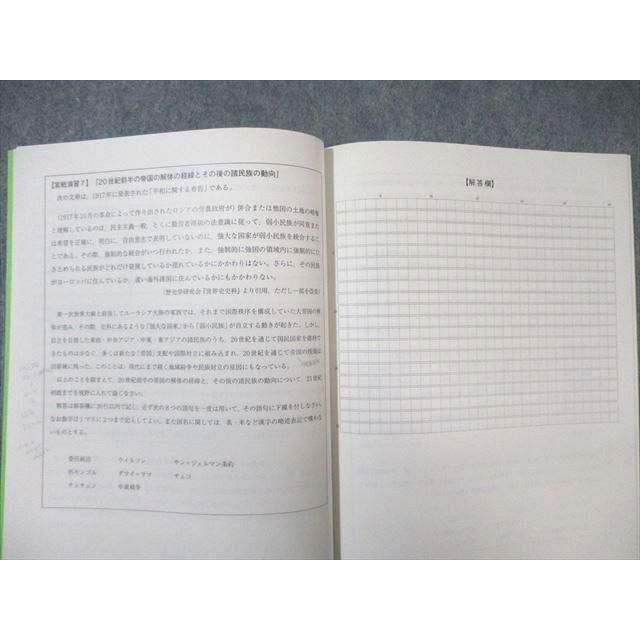 【実戦演習7】「20世紀前半の帝国の解体の経緯とその後の諸民族の動向」
次の文章は、1917年に発表された「平和に関する布告」である。
(1917年10月の革命によって作り出されたロシアの労農政府が)併合または他国の土地の略奪
と理解しているのは、民主主義一般、とくに勤労者階級の法意識に従って、弱小民族が同意また
は希望を正確に、明白に、自由意志で表明していないのに、強大な国家が弱小民族を統合するこ
とである。その際、強制的な統合がいつ行われたか、また、強制的に強国の領域内に強制的にひ
きとめられる民族がどれだけ発展しているか遅れているかにかかわりはない。さらに、その民族
がヨーロッパに住んでいるか、遠い海外諸国に住んでいるかにもかかわりない。
(歴史学研究会『世界史史料』より引用、ただし一部を改変)
第一次世界大戦と前後してユーラシア大陸の東西では、それまで国際秩序を構成していた大帝国の解
体が進み、その際、史料にあるような「強大な国家」から「弱小民族」が自立する動きが起きた。しかし、
自立を目指した東欧・中央アジア・中東・東アジアの諸民族のうち、20世紀を通じて国民国家を維持で
きたものは少なく、多くは新たな「帝国」支配や国際対立に組み込まれ、20世紀を通じて帝国の残滓は
旧領域に残った。このことは、現代にまで続く地域紛争や民族対立の原因にもなっている。
以上のことを踏まえて、20世紀前半の帝国の解体の経緯と、その後の諸民族の動向について、21世紀
初頭までを視野に入れて論じなさい。
解答は解答欄に20行以内で記し、必ず次の8つの語句を一度は用いて、その語句に下線を付しなさい。
なお数字は1マスに2つまで記入してよい。また国名に関しては、英・米など漢字の略述表記で構わな
いものとする。
委任統治 ウィルソン サン=ジェルマン条約
外モンゴル ダライ=ラマ チェコ
チェチェン 中東戦争
【解答欄】